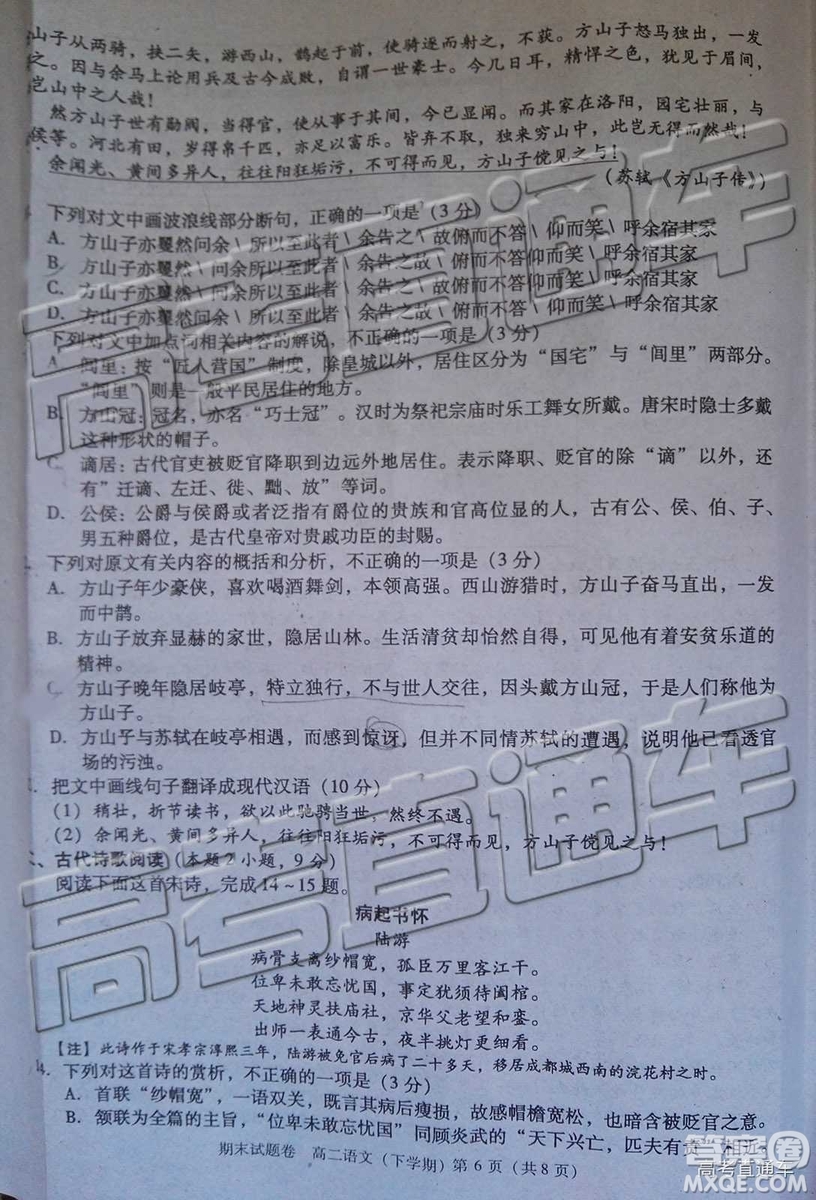 山子从两骑，挟二矢，游西山，鹊起于前，使骑逐而射之，不获。方山子怒马独出，一发
之。因与余马上论用兵及古今成败，自谓一世豪士。今几日耳，精悍之色，犹见于眉间，
岂山中之人哉！
然方山子世有勋阀，当得官，使从事于其间，今已显闻。而其家在洛阳，园宅壮丽，与
侯等。河北有田，岁得帛千匹，亦足以富乐。皆弃不取，独来穷山中，此岂无得而然哉！
余闻光、黄间多异人，往往阳狂垢污，不可得而见，方山子傥见之与！
（苏轼《方山子传》）
下列对文中画波浪线部分断句，正确的一项是（3分）
A. 方山子亦矍然问余\所以至此者\余告之\故俯而不答\仰而笑\呼余宿其家
B. 方山子亦矍然\问余所以至此者\余告之\故俯而不答\仰而笑\呼余宿其家
C. 方山子亦矍然\问余所以至此者\余告之故\俯而不答\仰而笑\呼余宿其家
D. 方山子亦矍然问余\所以至此者\余告之故\俯而不答\仰而笑\呼余宿其家
下列对文中加点词相关内容的解说，不正确的一项是（3分）
A. 闾里：按“匠人营国”制度，除皇城以外，居住区分为“国宅”与“闾里”两部分。
“闾里”则是一般平民居住的地方。
B. 方山冠：冠名，亦名“巧士冠”。汉时为祭祀宗庙时乐工舞女所戴。唐宋时隐士多戴
这种形状的帽子。
C. 谪居：古代官吏被贬官降职到边远外地居住。表示降职、贬官的除“谪”以外，还
有“迁谪、左迁、徙、黜、放”等词。
D. 公侯：公爵与侯爵或者泛指有爵位的贵族和官高位显的人，古有公、侯、伯、子、
男五种爵位，是古代皇帝对贵戚功臣的封赐。
下列对原文有关内容的概括和分析，不正确的一项是（3分）
A. 方山子年少豪侠，喜欢喝酒舞剑，本领高强。西山游猎时，方山子奋马直出，一发
而中鹊。
B. 方山子放弃显赫的家世，隐居山林。生活清贫却怡然自得，可见他有着安贫乐道的
精神。
C. 方山子晚年隐居岐亭，特立独行，不与世人交往，因头戴方山冠，于是人们称他为
方山子。
D. 方山子与苏轼在岐亭相遇，而感到惊讶，但并不同情苏轼的遭遇，说明他已看透官
场的污浊。
把文中画线句子翻译成现代汉语（10分）
（1）稍壮，折节读书，欲以此驰骋当世，然终不遇。
（2）余闻光、黄间多异人，往往阳狂垢污，不可得而见，方山子傥见之与！
、古代诗歌阅读（本题2小题，9分）
阅读下面这首宋诗，完成14～15题。
病起书怀
陆游
病骨支离纱帽宽，孤臣万里客江干。
位卑未敢忘忧国，事定犹须待阖棺。
天地神灵扶庙社，京华父老望和銮。
出师一表通今古，夜半挑灯更细看。
【注】此诗作于宋孝宗淳熙三年，陆游被免官后病了二十多天，移居成都城西南的浣花村之时。
4. 下列对这首诗的赏析，不正确的一项是（3分）
A. 首联“纱帽宽”，一语双关，既言其病后瘦损，故感帽檐宽松，也暗含被贬官之意。
B. 颔联为全篇的主旨，“位卑未敢忘忧国”同顾炎武的“天下兴亡，匹夫有责”相近。
期末试题卷 高二语文（下学期）第6页（共8页）
高考直通车
高考直通车
高考直通车
高考直通车
答案圈
MXQE.COM